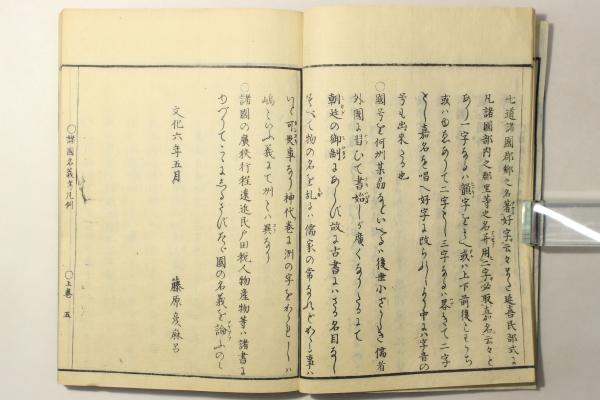 七道諸國郡鄕之名著好字云々また延喜民部式に
凡諸國部内之郡里等之名并用二字必取嘉名云々と
あり一字なるハ韻字をそへ或ハ上下前後をもうち
或ハもあうて二字とし三字なるハ畧きて二字
とし嘉名を唱へ好字に改られしより中にハ字音の
号も出来たる也
〇國号を何州某品などいへるハ後世小ざかしき儒者
外國に習ひて書始しが廣くなりたるにて
朝廷の御制にあらず故に古書にハさる名目なし
すべて物の名を乱るハ儒家の常なれどあらぬ事ハ
いと可畏事なり神代巻に洲の字をかゝれしハ
嶋といふ義にて州とハ異なり
〇諸國の廣狭行程遠近民戸田税人物産物等ハ諸書に
ゆづりてこゝにしるさずたゞ國の名義を論ふのミ
文化六年五月
藤原彦麻呂
〇諸國名義考凡例
〇上巻 五